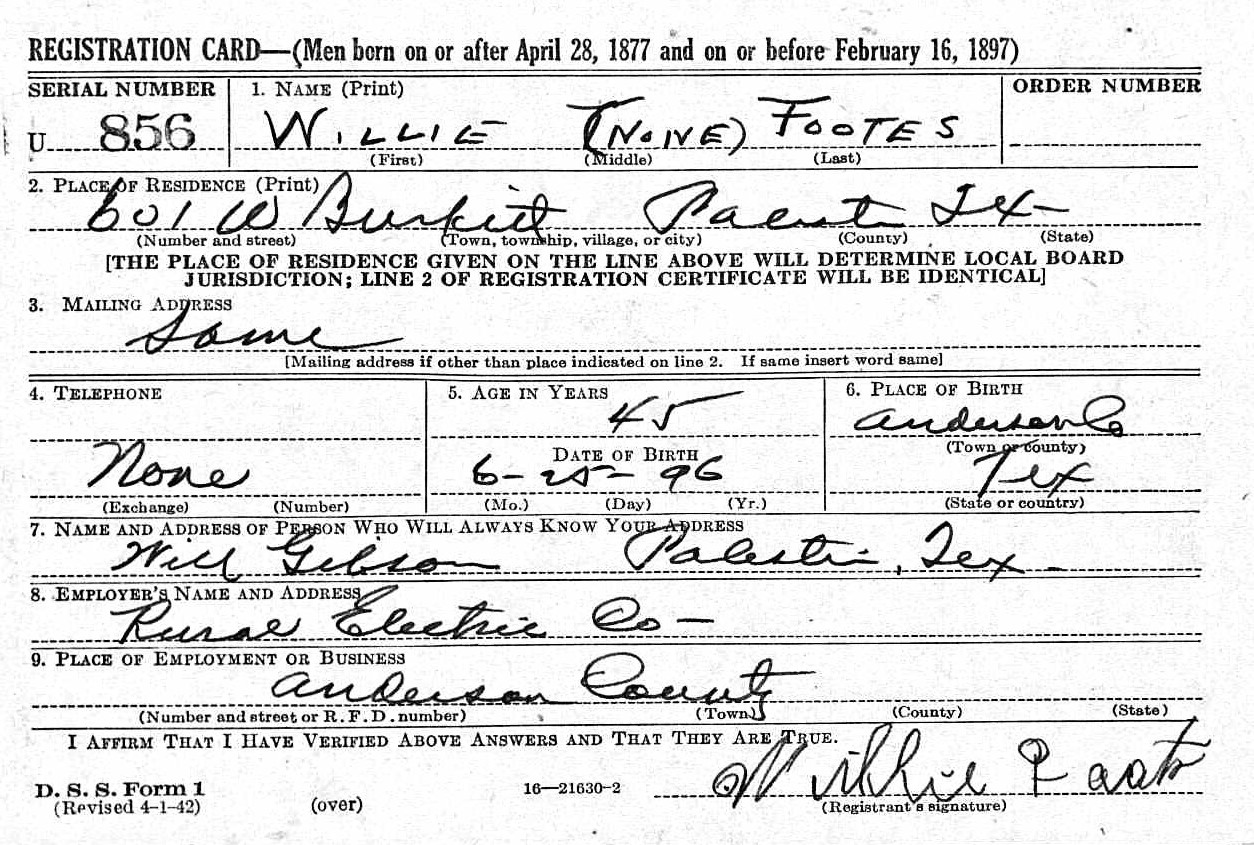 REGISTRATION CARD—(Men born on or after April 28, 1877 and on or before February 16, 1897)
SERIAL NUMBER 1. NAME (Print) ORDER NUMBER
U 856 WILLIE (NONE) FOOTES
(First) (Middle) (Last)
2. PLACE OF RESIDENCE (Print)
601 W Burkitt Palestin Tex-
(Number and street) (Town, township, village, or city) (County) (State)
[THE PLACE OF RESIDENCE GIVEN ON THE LINE ABOVE WILL DETERMINE LOCAL BOARD
JURISDICTION; LINE 2 OF REGISTRATION CERTIFICATE WILL BE IDENTICAL]
3. MAILING ADDRESS
Same
[Mailing address if other than place indicated on line 2. If same insert word same]
4. TELEPHONE 5. AGE IN YEARS 6. PLACE OF BIRTH
45 Anderson Co
DATE OF BIRTH (Town or county)
None 6-25-96 Tex
(Exchange) (Number) (Mo.) (Day) (Yr.) (State or country)
7. NAME AND ADDRESS OF PERSON WHO WILL ALWAYS KNOW YOUR ADDRESS
Will Gibson Palestin, Tex-
8. EMPLOYER'S NAME AND ADDRESS
Rural Electric Co-
9. PLACE OF EMPLOYMENT OR BUSINESS
Anderson County
(Number and street or R. F. D. number) (Town) (County) (State)
I AFFIRM THAT I HAVE VERIFIED ABOVE ANSWERS AND THAT THEY ARE TRUE.
D. S. S. Form 1
(Revised 4-1-42) (over) 16—21630-2 Willie
(Registrant's signature)